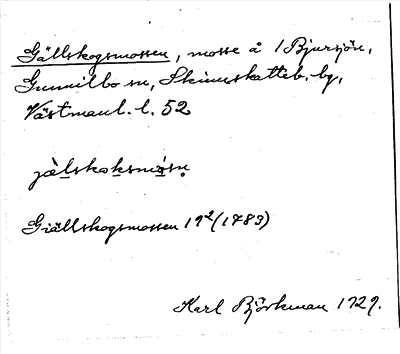 Gällskogsmossen, mosse å 1 Bjursjön,
Gunnilbo sn, Skinnskatteb. bg,
Västmanl. l. 52
jälskoksmåsn
Giällskogsmossen 19² (1783)
Karl Björkman 1929.